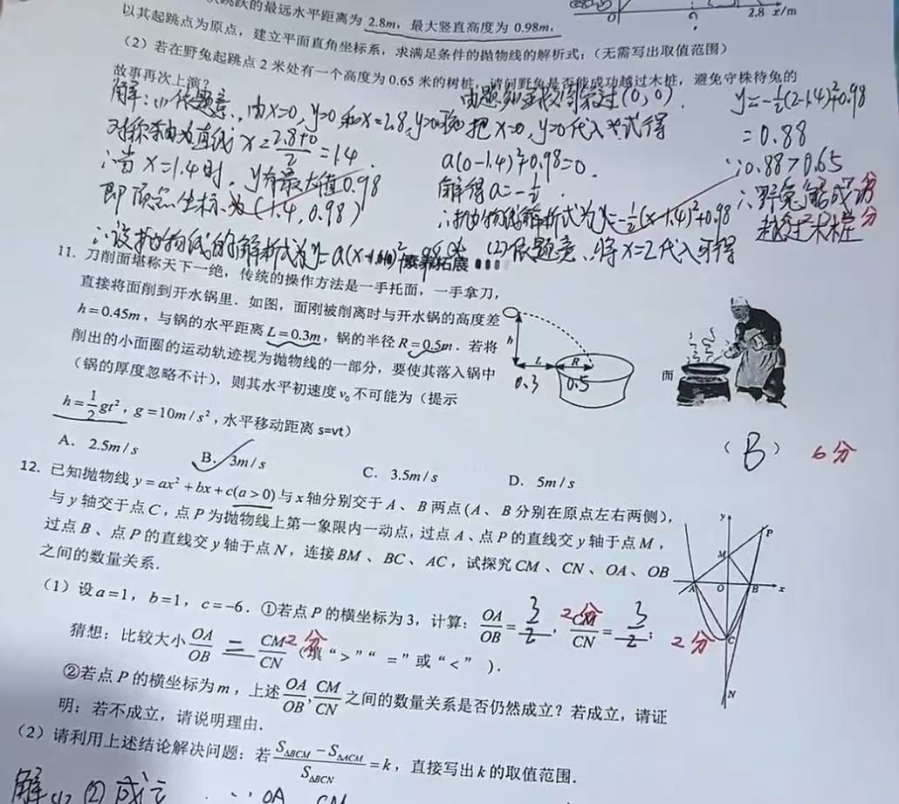 跳跃的最远水平距离为 2.8m，最大竖直高度为 0.98m，
以其起跳点为原点，建立平面直角坐标系，求满足条件的抛物线的解析式；（无需写出取值范围）
（2）若在野兔起跳点 2 米处有一个高度为 0.65 米的树桩，请问野兔是否能成功越过木桩，避免守株待兔的
故事再次上演？
O
2.8 x/m
解：(1)依题意，由x=0，y=0和x=2.8，y=0知
对称轴为直线x=(2.8+0)/2=1.4
∴当x=1.4时，y有最大值0.98
即顶点坐标为(1.4，0.98)
∴设抛物线的解析式为y=a(x-1.4)²+0.98
由题知
过(0，0)
把x=0，y=0代入
式得
a(0-1.4)²+0.98=0.
解得a=-1/2.
∴抛物线解析式为y=-1/2(x-1.4)²+0.98
(2)依题意，将x=2代入可得
y=-1/2(2-1.4)²+0.98
=0.88
∵0.88>0.65
∴野兔能成功
越过木桩
分
分
素养拓展
11. 刀削面堪称天下一绝，传统的操作方法是一手托面，一手拿刀，
直接将面削到开水锅里．如图，面刚被削离时与开水锅的高度差
h=0.45m，与锅的水平距离 L=0.3m，锅的半径 R=0.5m．若将
削出的小面圈的运动轨迹视为抛物线的一部分，要使其落入锅中
（锅的厚度忽略不计），则其水平初速度 v₀ 不可能为（提示
h=1/2gt²，g=10m/s²，水平移动距离 s=vt）
h
L
R
0.3
0.5
面
（B）
6分
A．2.5m/s
B．3m/s
C．3.5m/s
D．5m/s
12. 已知抛物线 y=ax²+bx+c(a>0)与x轴分别交于A、B两点(A、B分别在原点左右两侧)，
与y轴交于点C，点P为抛物线上第一象限内一动点，过点A、点P的直线交y轴于点M，
过点B、点P的直线交y轴于点N，连接BM、BC、AC，试探究CM、CN、OA、OB
之间的数量关系．
y
P
M
A
O
B
x
C
N
（1）设a=1，b=1，c=-6．①若点P的横坐标为3，计算：OA/OB=3/2，CM/CN=3/2；
2分
2分
猜想：比较大小OA/OB = CM/CN（填“>”“=”或“<”）．
2分
②若点P的横坐标为m，上述OA/OB，CM/CN之间的数量关系是否仍然成立？若成立，请证
明；若不成立，请说明理由．
（2）请利用上述结论解决问题：若(S△BCM−S△ACM)/S△BCN=k，直接写出k的取值范围．
解(1)②成立
∵OA
CM